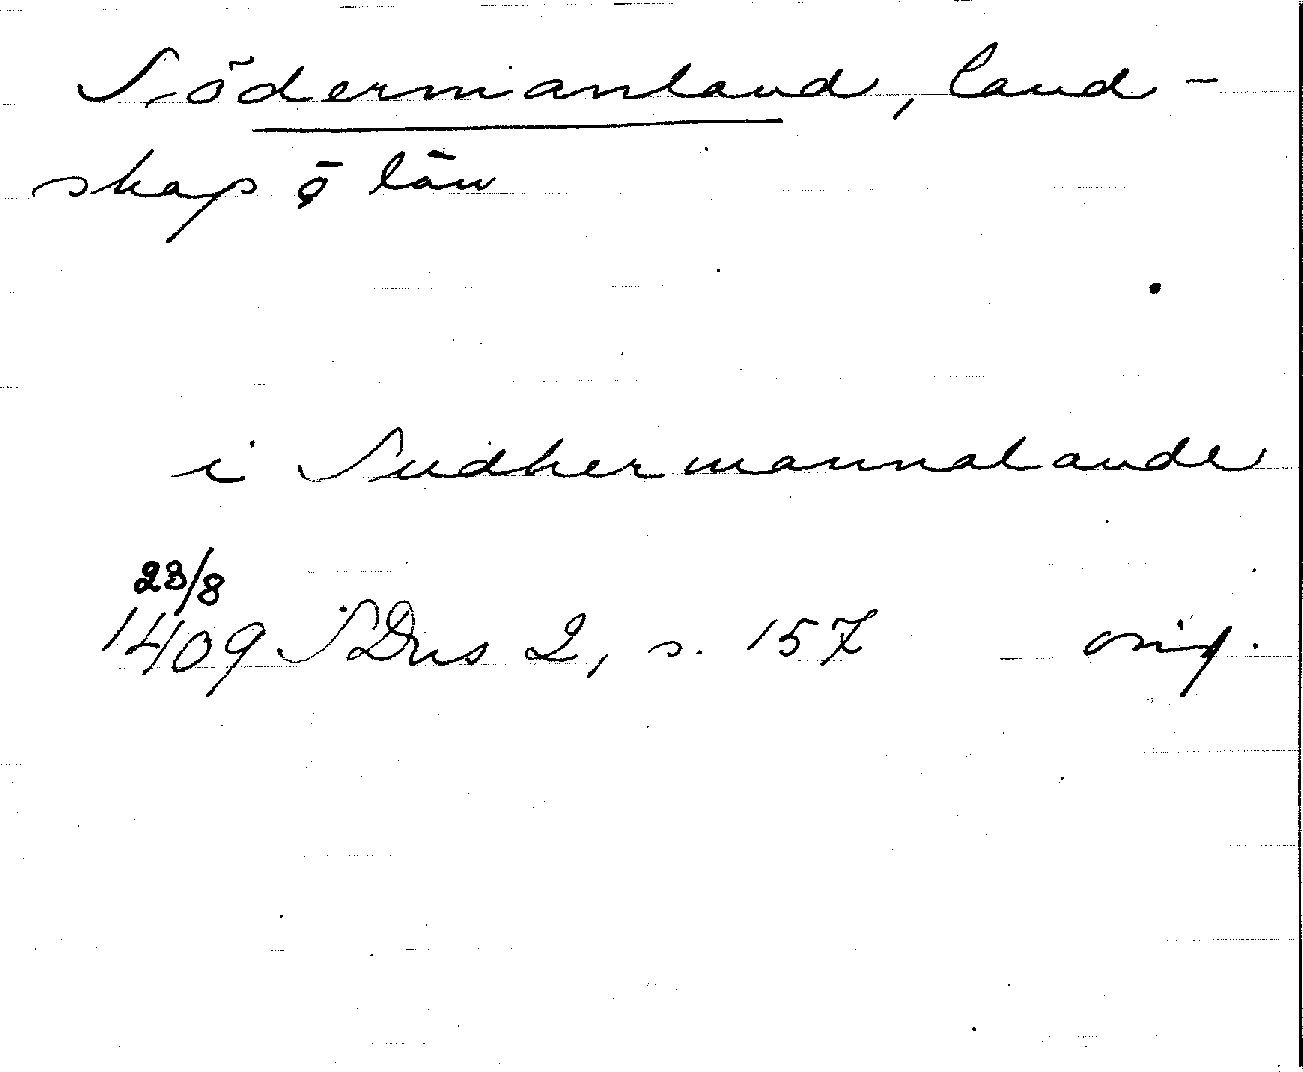 Södermanland, land-
skap o län
i Sudhermannalande
23/8
1409 SDns 2, s. 157 orig.